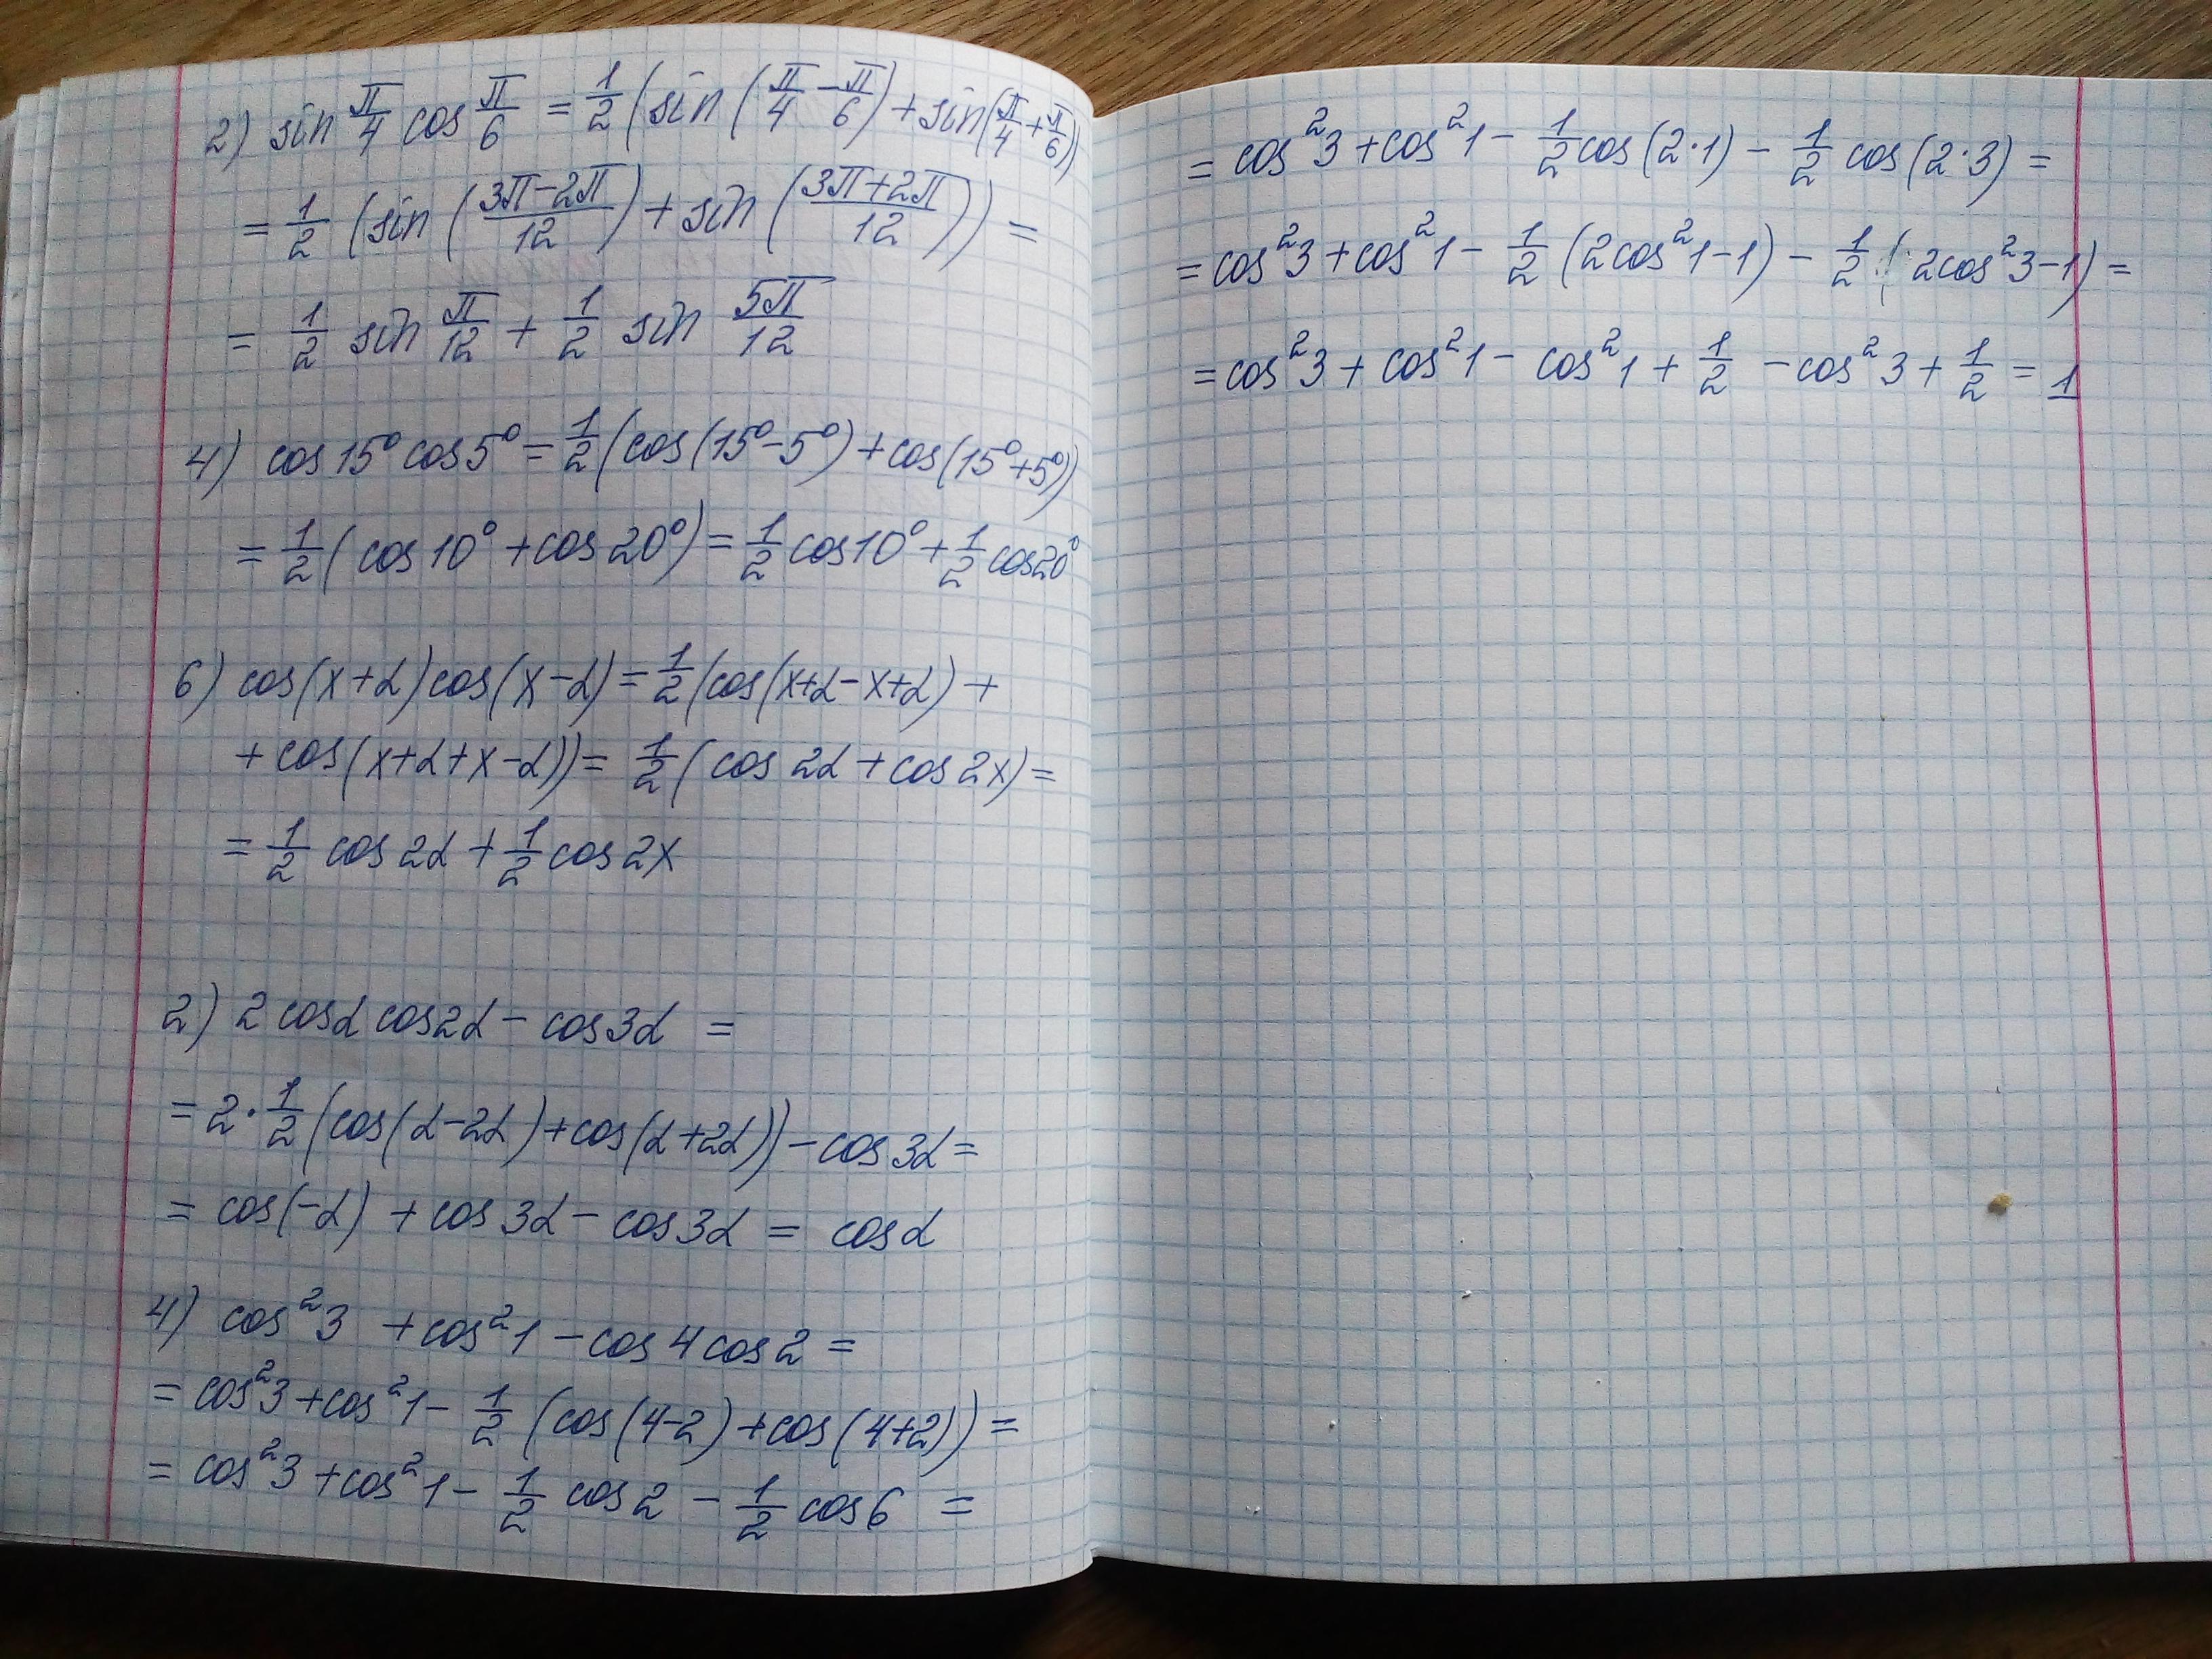 2) sin π/4 cos π/6 = 1/2 (sin (π/4 − π/6) + sin(π/4 + π/6))
= 1/2 (sin ((3π−2π)/12) + sin ((3π+2π)/12)) =
= 1/2 sin π/12 + 1/2 sin 5π/12
4) cos 15° cos 5° = 1/2 (cos(15°−5°) + cos(15°+5°))
= 1/2 (cos 10° + cos 20°) = 1/2 cos 10° + 1/2 cos 20°
6) cos(x+α) cos(x−α) = 1/2 (cos(x+α−x+α) +
+ cos(x+α+x−α)) = 1/2 (cos 2α + cos 2x) =
= 1/2 cos 2α + 1/2 cos 2x
2) 2 cosα cos2α − cos3α =
= 2 · 1/2 (cos(α−2α) + cos(α+2α)) − cos 3α =
= cos(−α) + cos 3α − cos 3α = cos α
4) cos²3 + cos²1 − cos 4 cos 2 =
= cos²3 + cos²1 − 1/2 (cos(4−2) + cos(4+2)) =
= cos²3 + cos²1 − 1/2 cos 2 − 1/2 cos 6 =
= cos²3 + cos²1 − 1/2 cos(2·1) − 1/2 cos(2·3) =
= cos²3 + cos²1 − 1/2 (2cos²1−1) − 1/2 (2cos²3−1) =
= cos²3 + cos²1 − cos²1 + 1/2 − cos²3 + 1/2 = 1